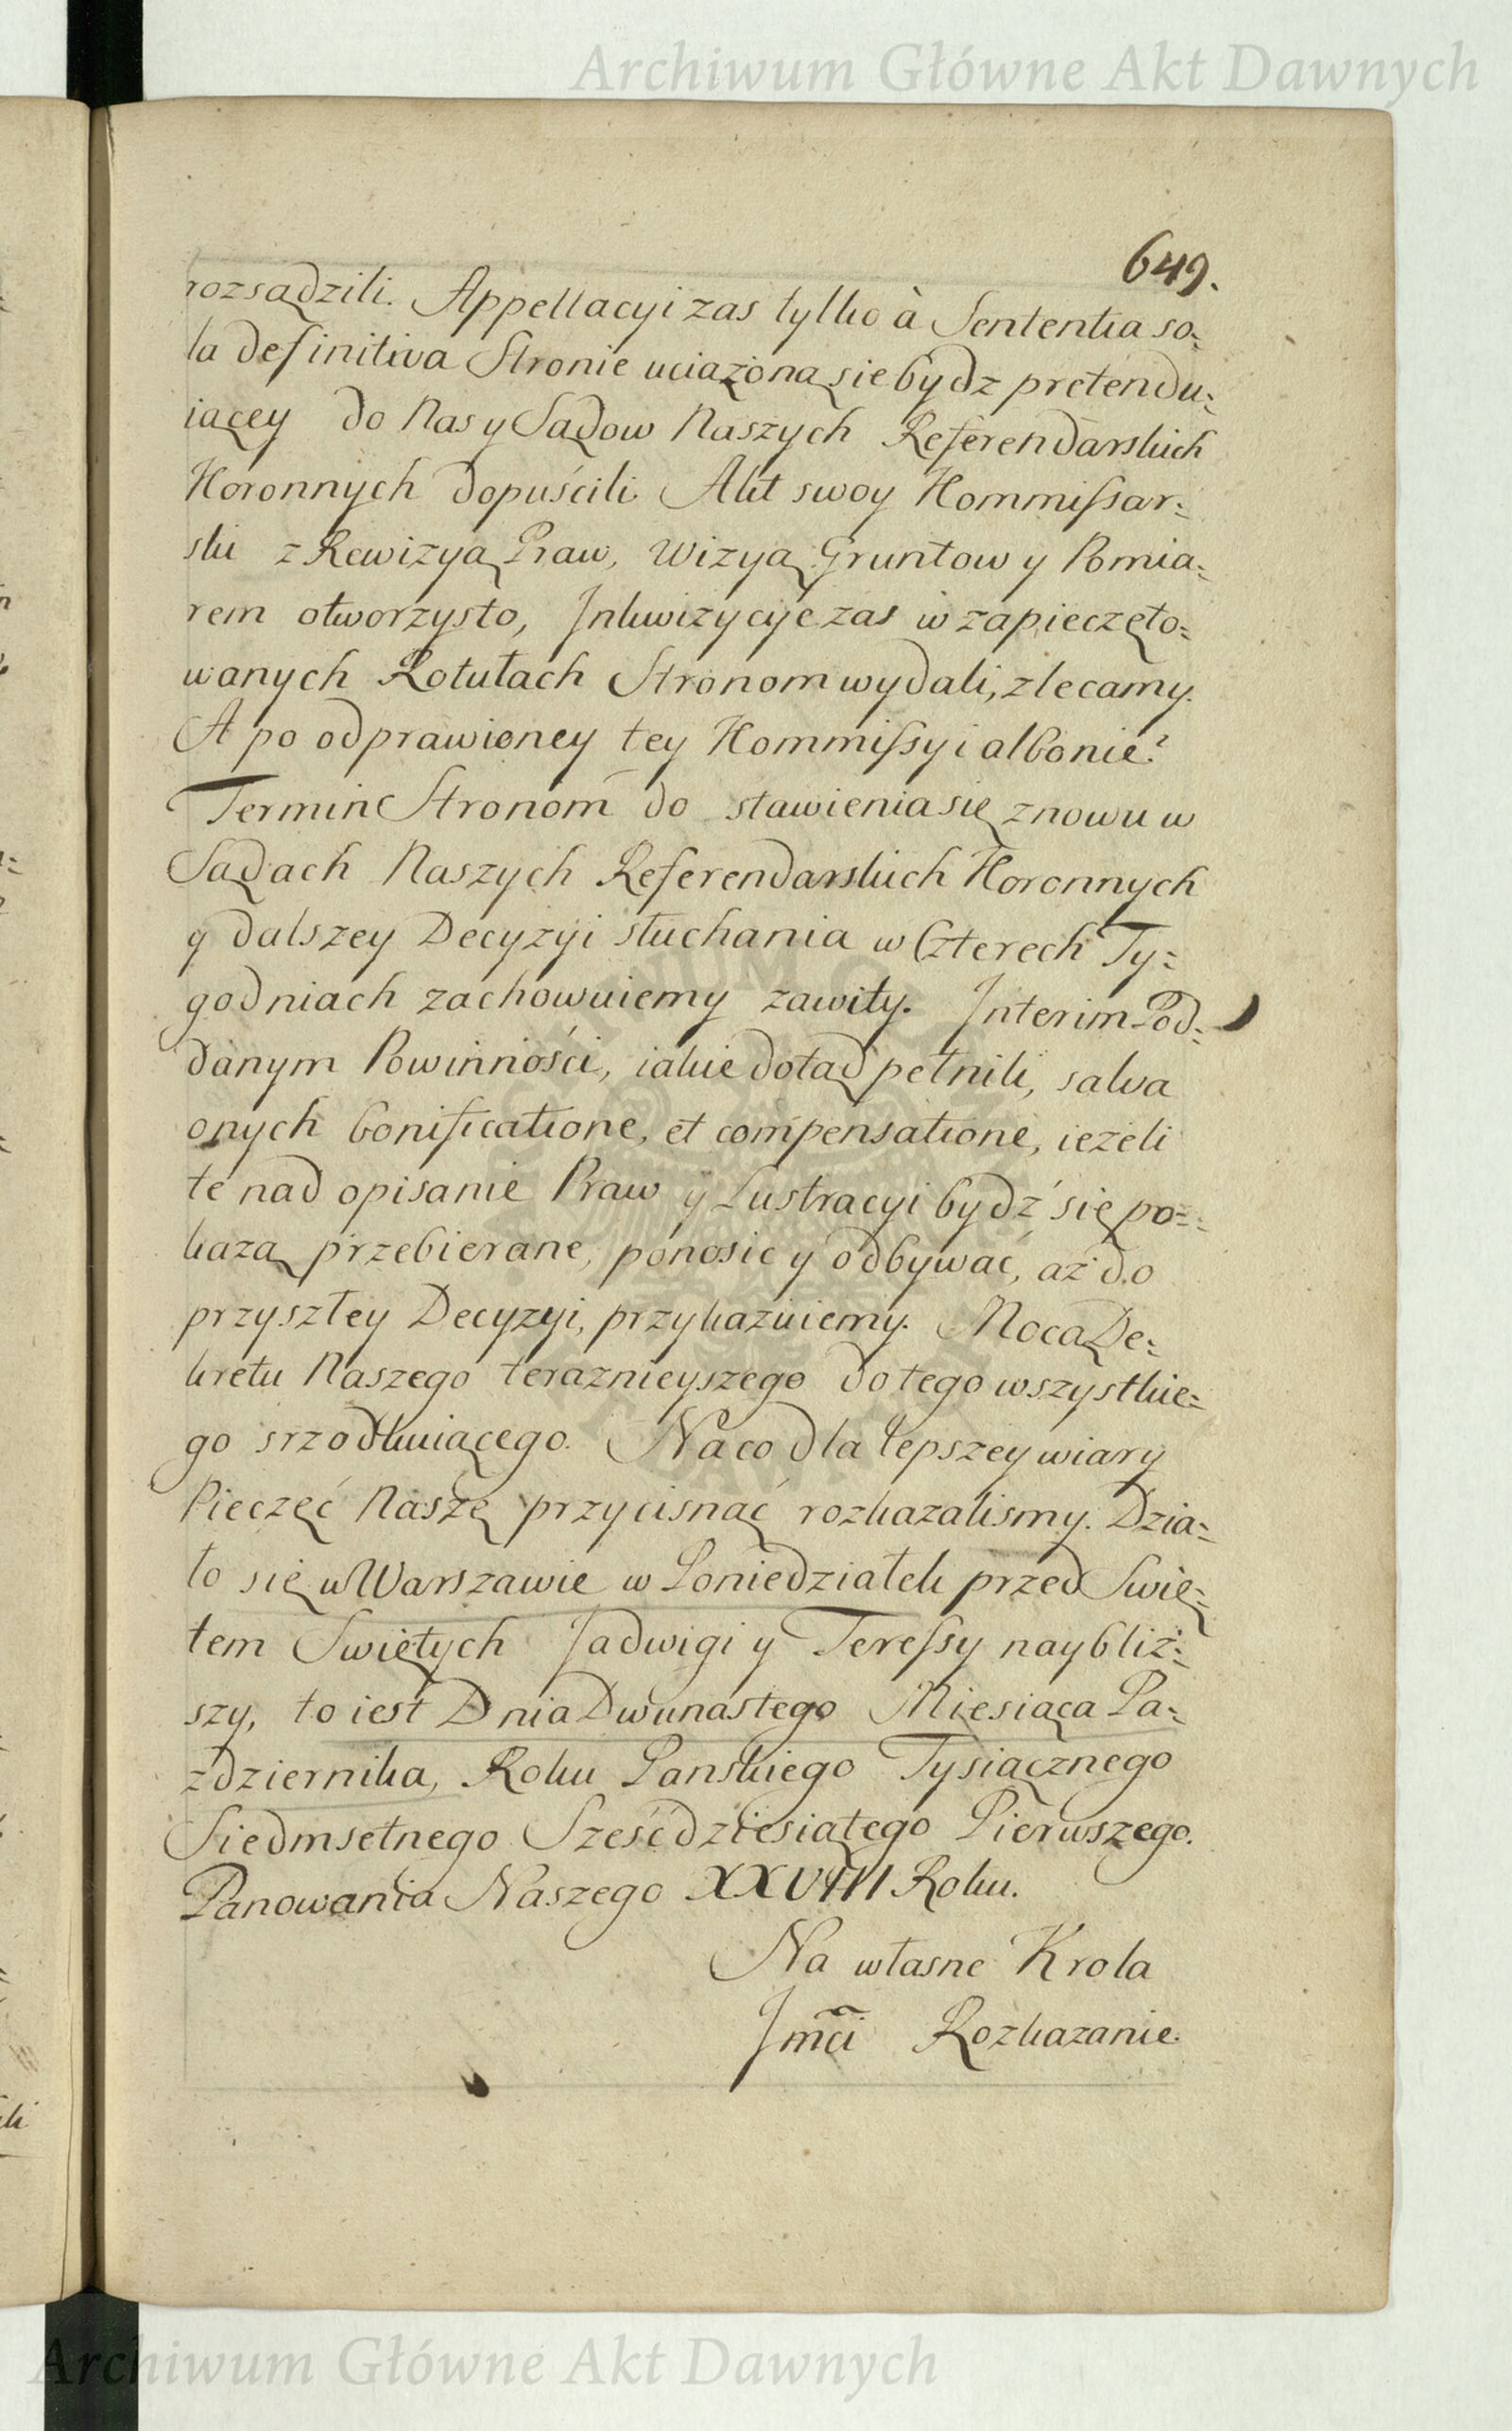 Archiwum Główne Akt Dawnych
649.
rozsądzili. Appellacyi zas tylko à Sententia so=
la definitiva Stronie uciążoną się bydz pretendu=
iącey do Nas y Sądow Naszych Referendarskich
Koronnych dopuścili. Akt swoy Kommissar=
ski z Rewizyą Praw, Wizyą Gruntow y Pomia=
rem otworzysto, Inkwizycye zas w zapieczęto=
wanych Rotułach Stronom wydali, zlecamy.
A po odprawioney tey Kommissyi albo nie?
Termin Stronom do stawienia się znowu w
Sądach Naszych Referendarskich Koronnych
y dalszey Decyzyi słuchania w Czterech Ty=
godniach zachowuiemy zawity. Interim Pod=
danym Powinności, iakie dotąd pełnili, salva
onych bonificatione, et compensatione, ieżeli
te nad opisanie Praw y Lustracyi bydź się po=
każą przebierane, ponosic y odbywać, aż do
przyszłey Decyzyi, przykazuiemy. Mocą De=
kretu Naszego teraznieyszego do tego wszystkie=
go srzodkuiącego. Na co dla lepszey wiary
Pieczęć Naszę przycisnąć rozkazalismy. Dzia=
ło się w Warszawie w Poniedziałek przed Swię=
tem Swiętych Jadwigi y Teressy naybliż=
szy, to iest Dnia Dwunastego Miesiąca Pa=
zdziernika, Roku Panskiego Tysiącznego
Siedmsetnego Sześćdziesiątego Pierwszego.
Panowania Naszego XXVIII Roku.
Na własne Krola
Jmći Rozkazanie.
Archiwum Główne Akt Dawnych